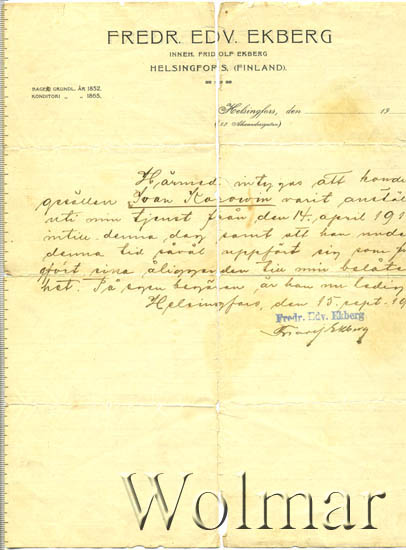 FREDR. EDV. EKBERG
INNEH. FRIDOLF EKBERG
HELSINGFORS, (FINLAND).
BAGERI GRUNDL. ÅR 1852.
KONDITORI „ „ 1865.
Helsingfors, den 19
Härmed intygas att kondi
gesällen Ivan varit anstäl
uti min tjenst från den 14. april 191
intill denna dag samt att han unde
denna tid såväl uppfört sig som
gjort sina åligganden till min belåte
het. På egen begäran är han nu ledig
Helsingfors, den 15. sept. 19
Fredr. Edv. Ekberg
Fridolf Ekberg
Wolmar